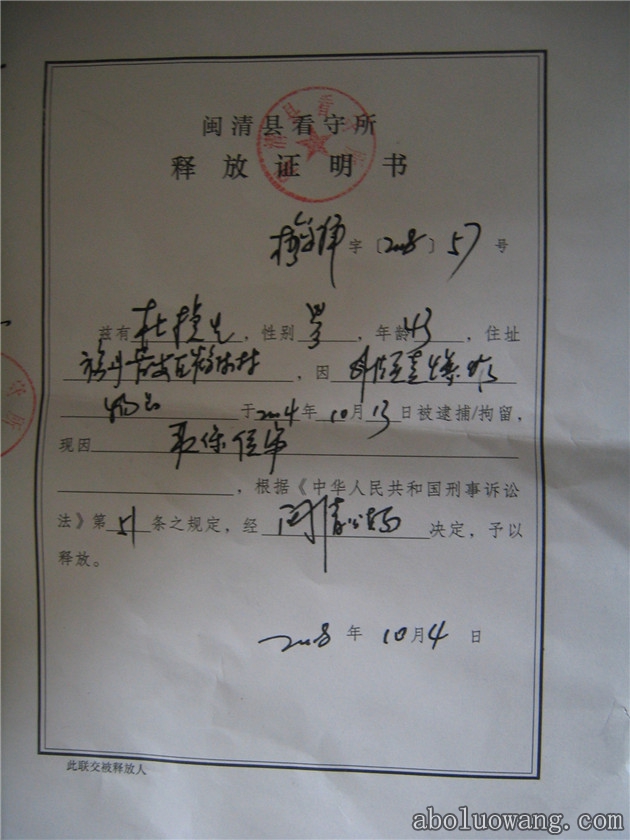 闽清县看守所
释放证明书
字〔2008〕57号
兹有杜捷生，性别男，年龄43，住址
，因
物品于2004年10月13日被逮捕/拘留，
现因取保候审
，根据《中华人民共和国刑事诉讼
法》第51条之规定，经闽清公安局决定，予以
释放。
2008年10月4日
此联交被释放人
aboluowang.com